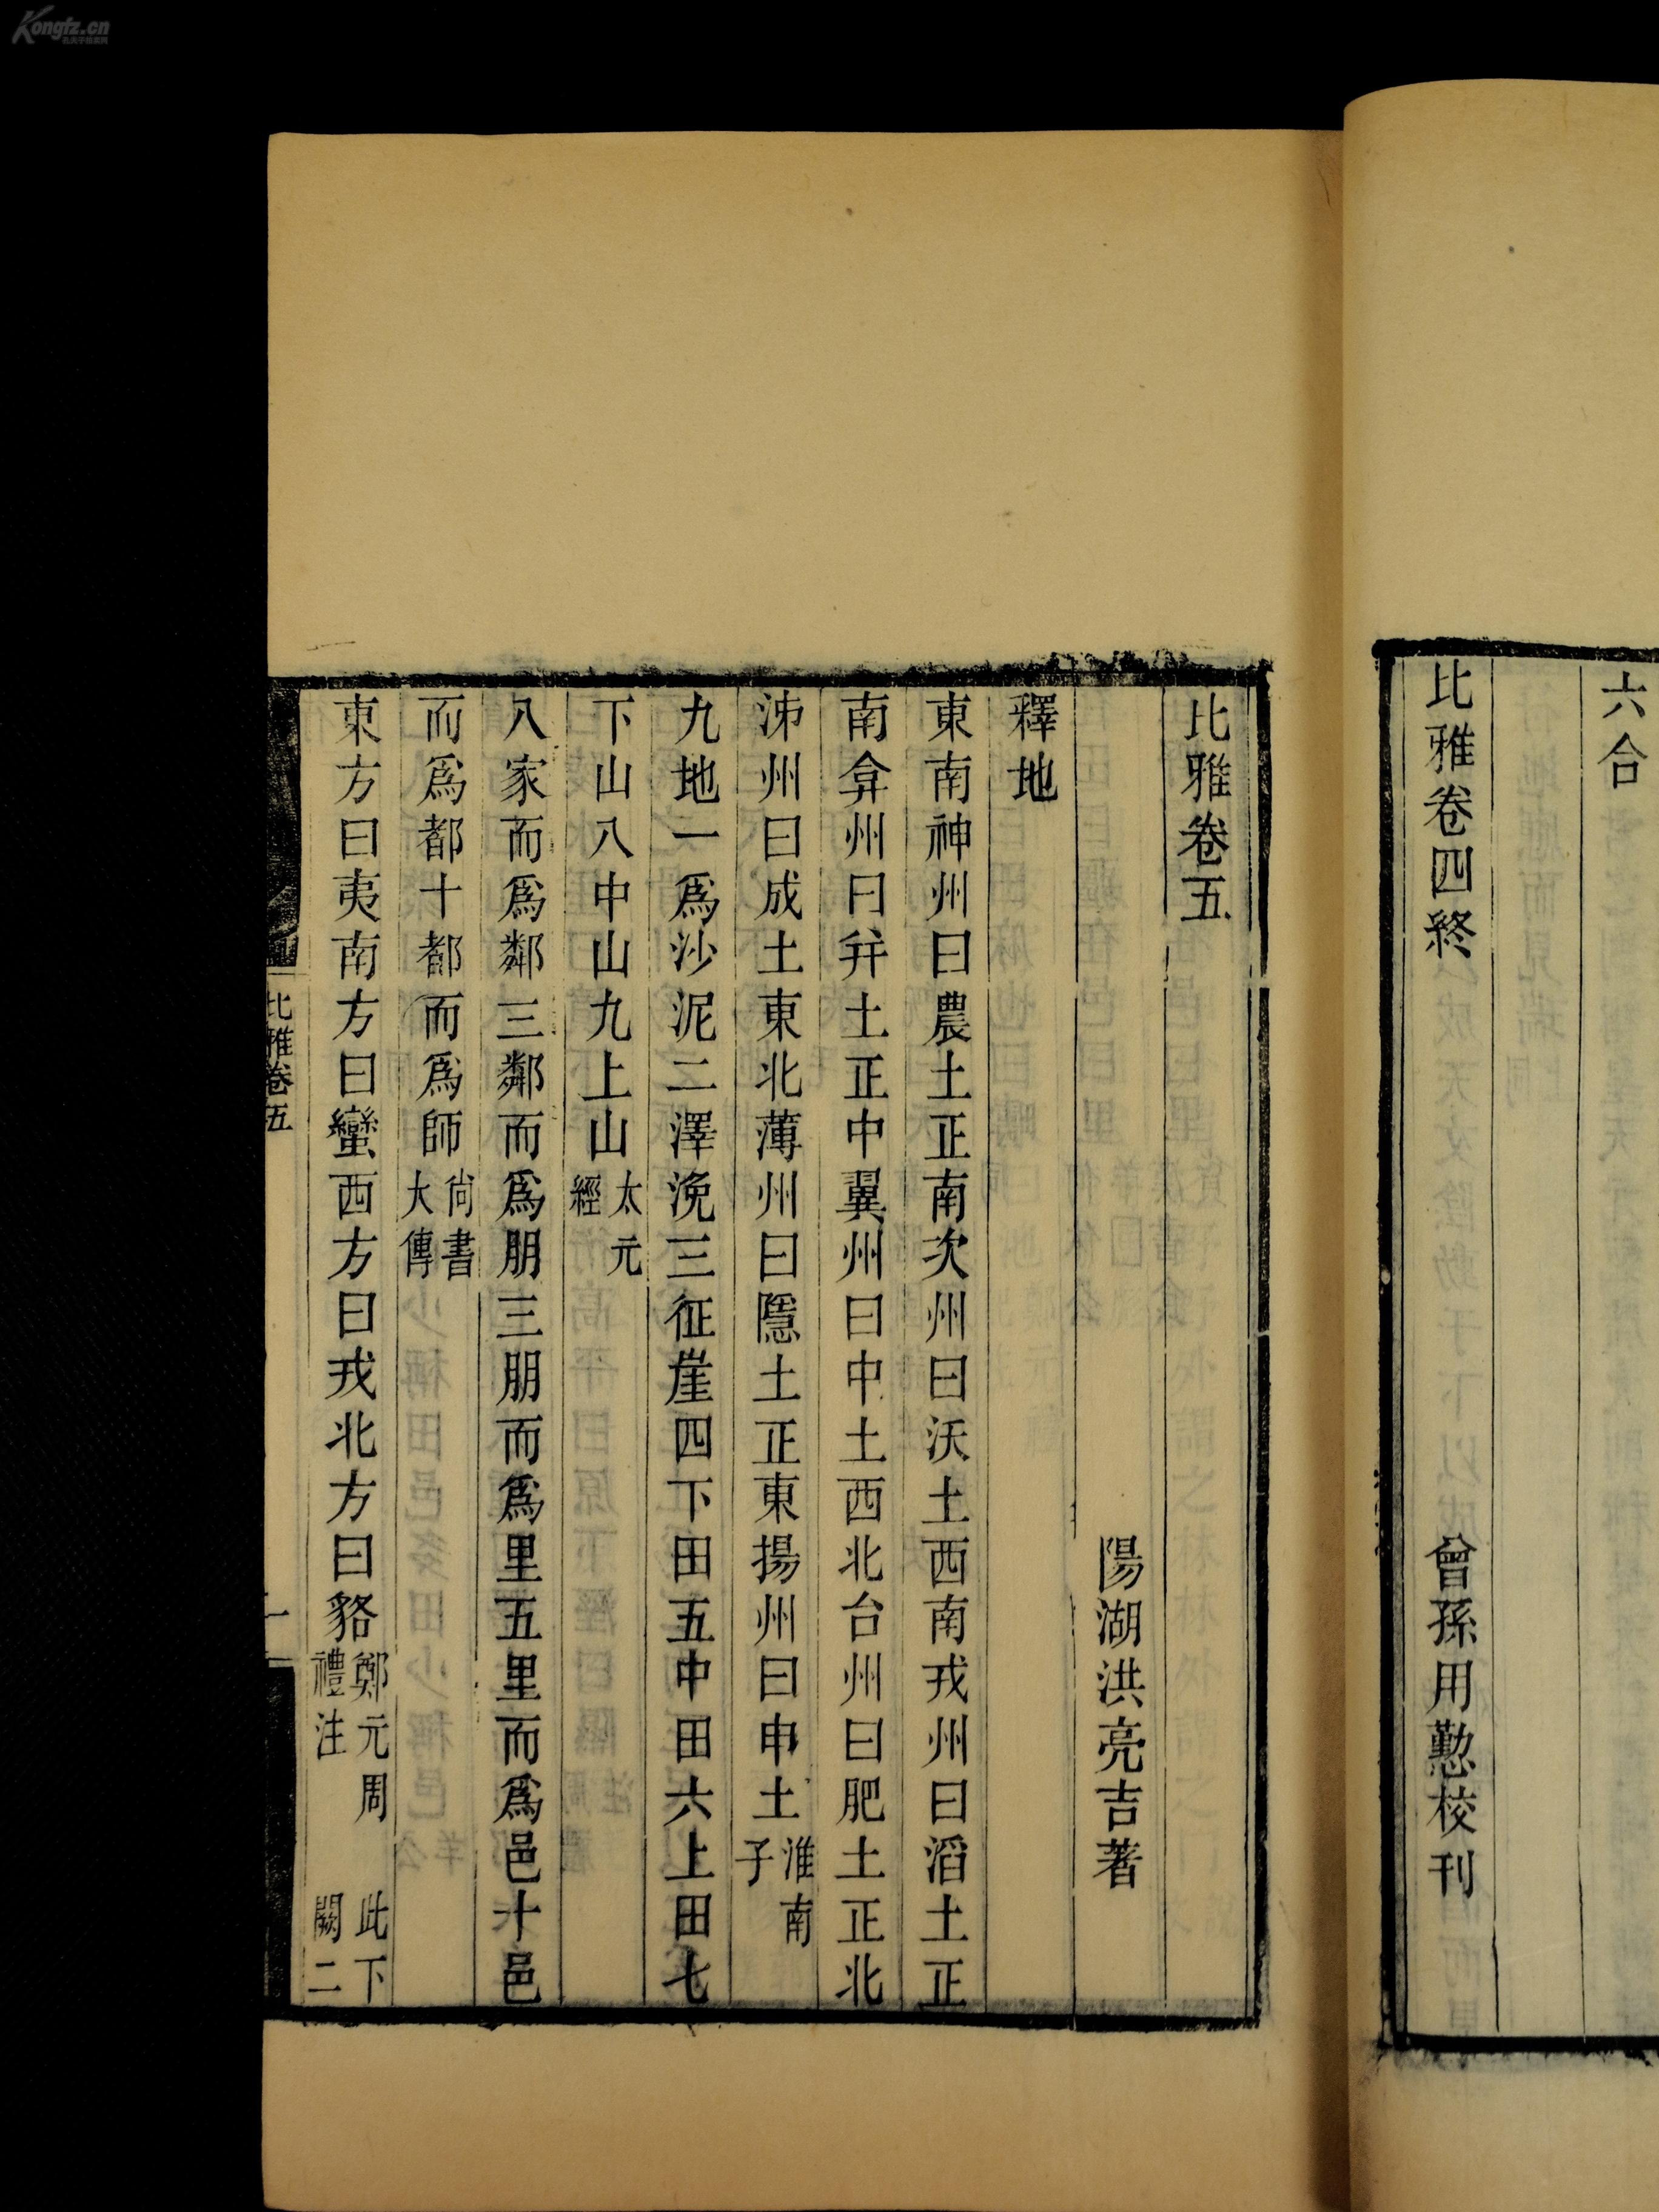 六合
比雅卷四終
曾孫用懃校刊
比雅卷五
陽湖洪亮吉著
釋地
東南神州曰農土正南次州曰沃土西南戎州曰滔土正
南弇州曰幷土正中冀州曰中土西北台州曰肥土正北
泲州曰成土東北薄州曰隱土正東揚州曰申土淮南子
九地一爲沙泥二澤浼三征崖四下田五中田六上田七
下山八中山九上山太元經
八家而爲鄰三鄰而爲朋三朋而爲里五里而爲邑十邑
而爲都十都而爲師尙書大傳
東方曰夷南方曰蠻西方曰戎北方曰貉鄭元周禮注 此下闕二
比雅卷五
一
Kongfz.cn
孔夫子旧书网